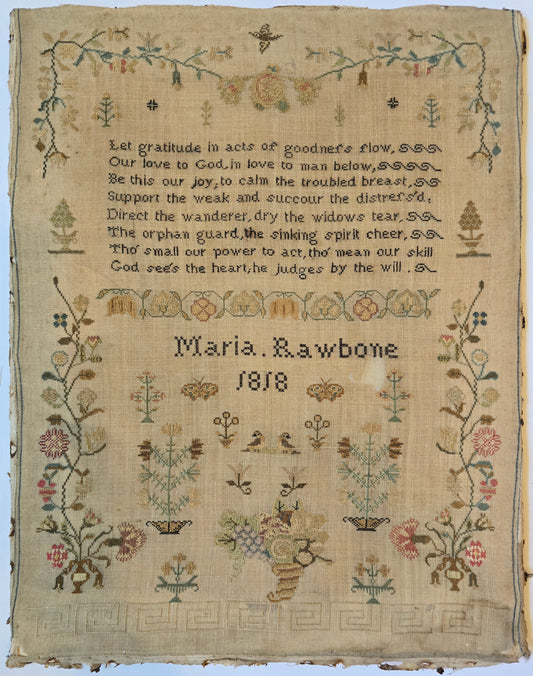 Let gratitude in acts of goodneſs flow,
Our love to God, in love to man below,
Be this our joy, to calm the troubled breast,
Support the weak and succour the distreſs'd;
Direct the wanderer, dry the widows tear,
The orphan guard, the sinking spirit cheer,
Tho' small our power to act, tho' mean our skill
God see's the heart, he judges by the will .
Maria . Rawbone
1818